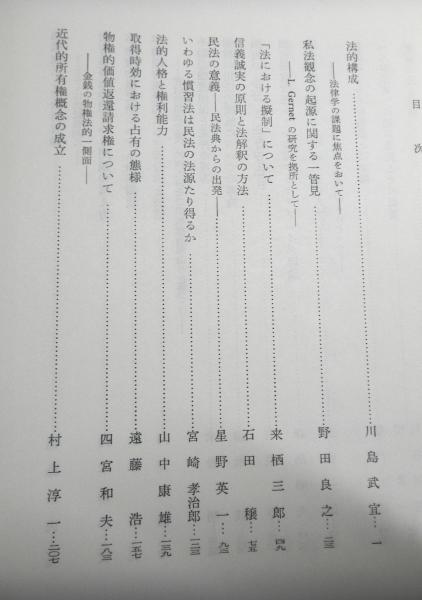 目次
法的構成……川島武宜… 一
――法律学の課題に焦点をおいて――
私法観念の起源に関する一管見……野田良之…二三
――L. Gernet の研究を拠所として――
「法における擬制」について……来栖三郎…四九
信義誠実の原則と法解釈の方法……石田穣…七五
民法の意義――民法典からの出発――……星野英一…九三
いわゆる慣習法は民法の法源たり得るか……宮崎孝治郎…一二三
法的人格と権利能力……山中康雄…一三九
取得時効における占有の態様……遠藤浩…一五七
物権的価値返還請求権について……四宮和夫…一八三
――金銭の物権法的一側面――
近代的所有権概念の成立……村上淳一…二〇七